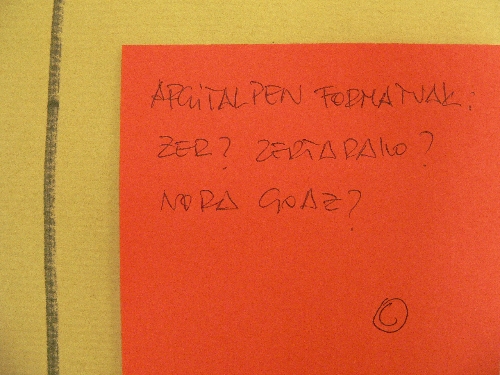 ARGITALPEN FORMATUAK:
ZER? ZERTARAKO?
NORA GOAZ?
©